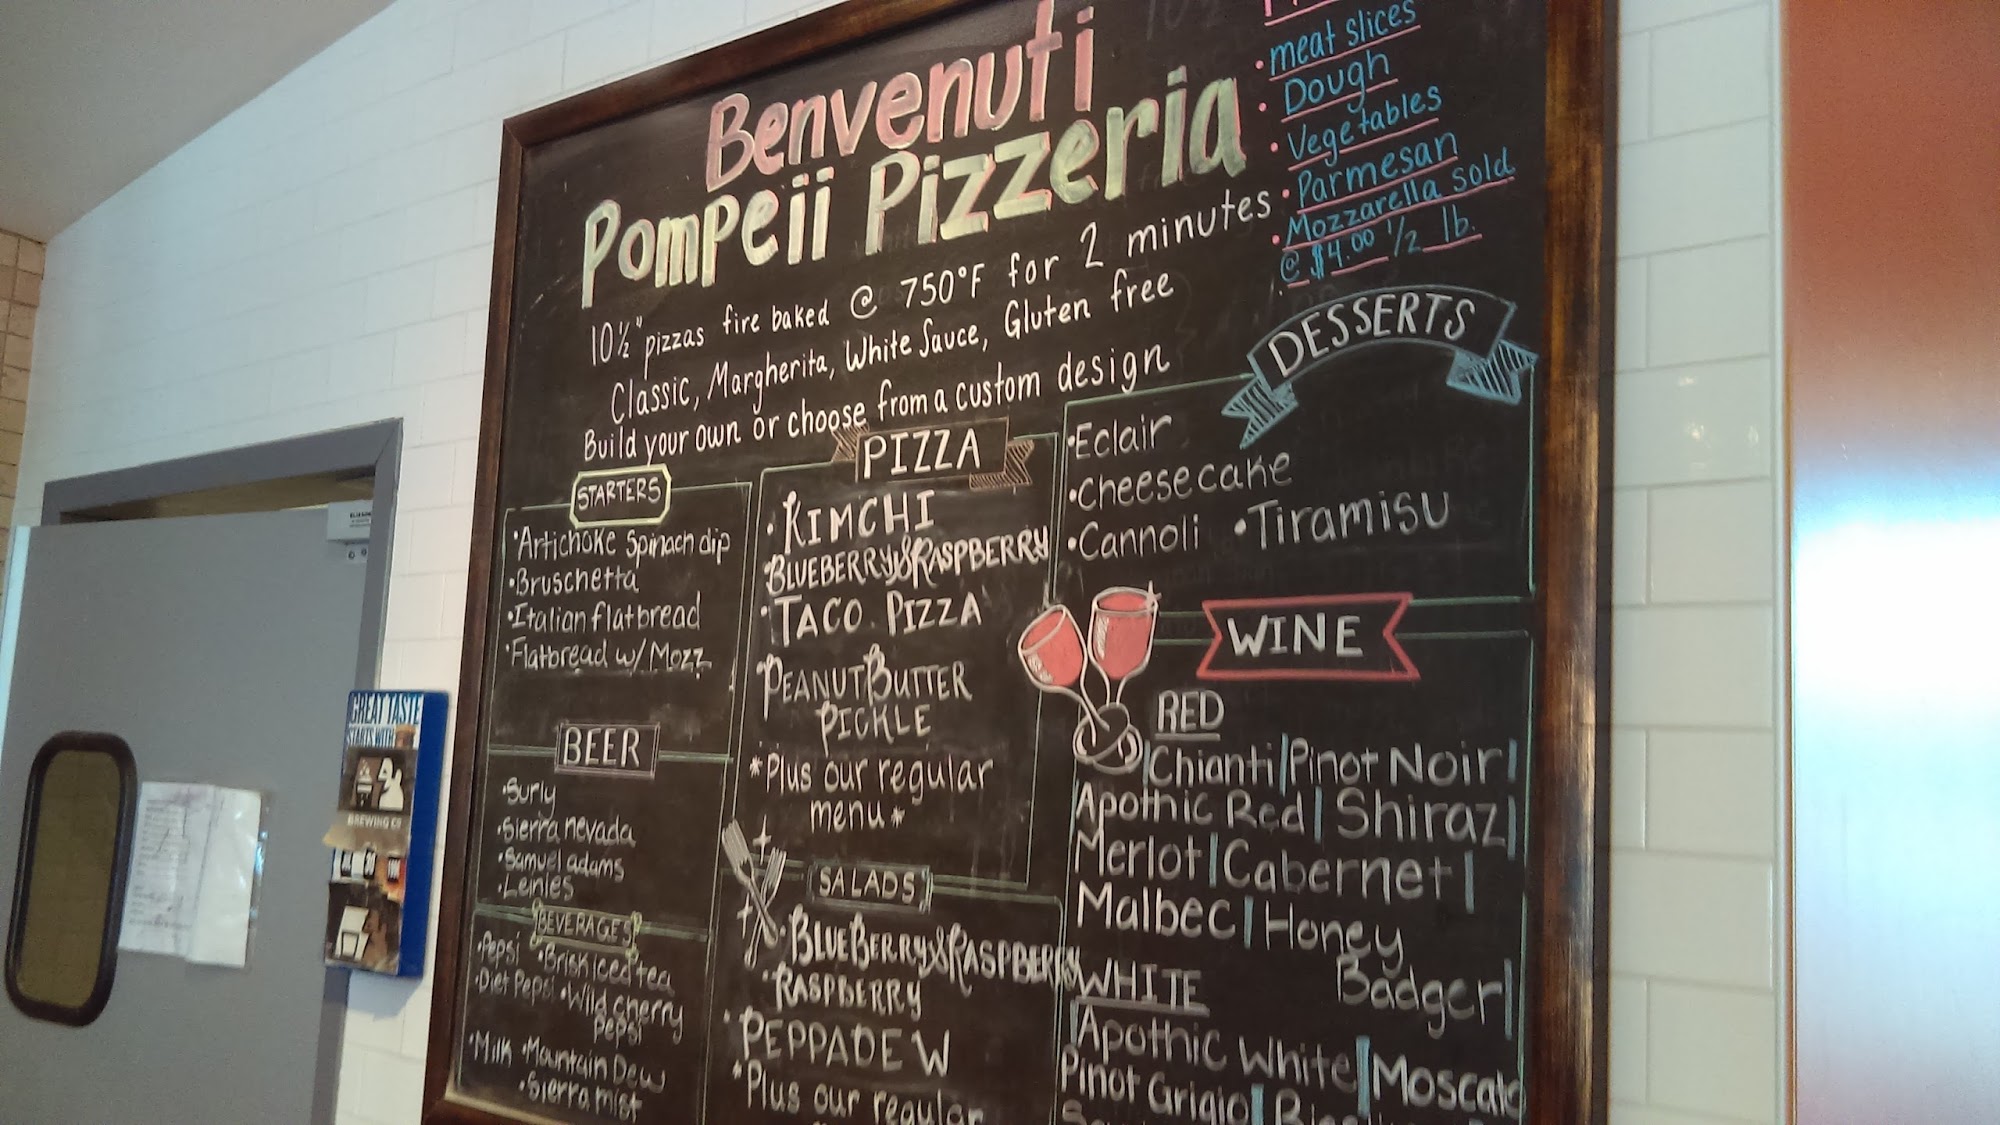 Benvenuti
Pompeii Pizzeria
10½" pizzas fire baked @ 750°F for 2 minutes
Classic, Margherita, White Sauce, Gluten free
Build your own or choose from a custom design
• meat slices
• Dough
• Vegetables
• Parmesan
• Mozzarella sold
@ $4.00 ½ lb.
STARTERS
• Artichoke Spinach dip
• Bruschetta
• Italian flatbread
• Flatbread w/ Mozz
BEER
• Surly
• Sierra nevada
• Samuel adams
• Leinies
BEVERAGES
• Pepsi • Brisk iced tea
• Diet Pepsi • Wild cherry
Pepsi
• Milk • Mountain Dew
• Sierra mist
PIZZA
• KIMCHI
• BLUEBERRY & RASPBERRY
• TACO PIZZA
• PEANUT BUTTER
PICKLE
*Plus our regular
menu*
SALADS
• BLUEBERRY & RASPBERRY
• RASPBERRY
• PEPPADEW
*Plus our regular
DESSERTS
• Eclair
• Cheesecake
• Cannoli • Tiramisu
WINE
RED
| Chianti | Pinot Noir |
Apothic Red | Shiraz |
Merlot | Cabernet |
Malbec | Honey
Badger |
WHITE
| Apothic White | Moscato
Pinot Grigio |
GREAT TASTE
STARTS WITH
BREWING CO